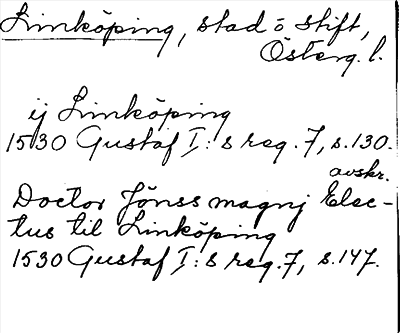 Linköping, stad o stift,
Österg. l.
ij Linköping
1530 Gustaf I:s reg. 7, s. 130.
avskr.
Doctor Jönss magnj Elec-
tus til Linköping
1530 Gustaf I:s reg. 7, s. 147.